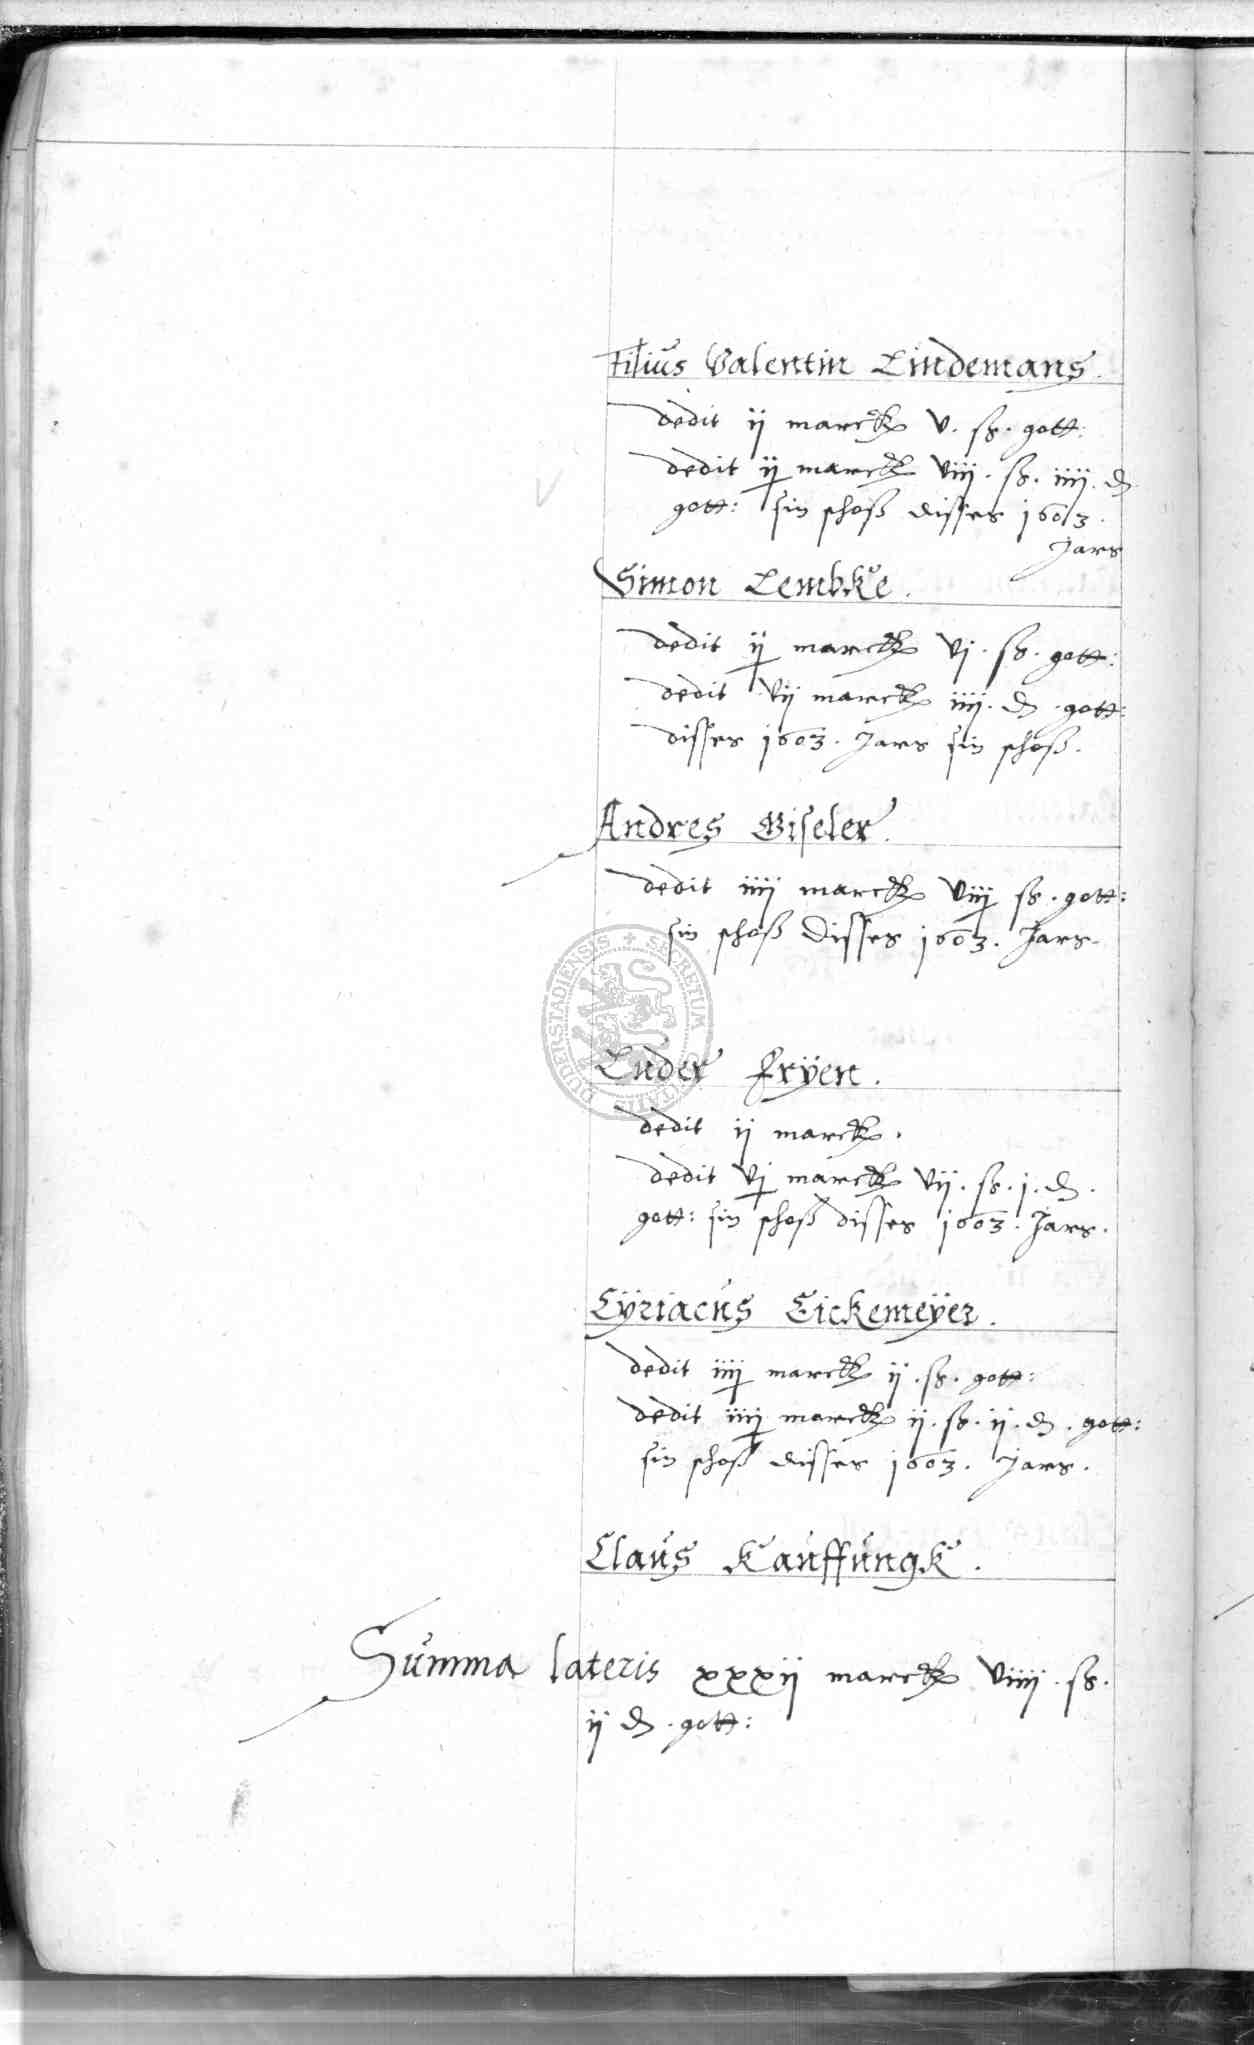 Filius Valentin Lindemans.
dedit ij marck v. ß. gott:
dedit ij marck viiij. ß. iiij. d
gott: sin schoß disses 1603.
Jars
Simon Lembke.
dedit ij marck vj. ß. gott:
dedit vij marck iiij. d. gott:
disses 1603. Jars sin schoß.
Andres Giseler.
dedit iiij marck viij ß. gott:
sin schoß disses 1603. Jars.
Luder Fryen.
dedit ij marck.
dedit vj marck vij. ß. j. d.
gott: sin schoß disses 1603. Jars.
Cÿriacus Eickemeÿer.
dedit iiij marck ij. ß. gott:
dedit iiij marck ij. ß. ij. d. gott:
sin schoß disses 1603. Jars.
Claus Kauffungk.
Summa lateris xxxij marck viiij. ß.
ij d. gott:
DUDERSTADIENSIS + SECRETUM